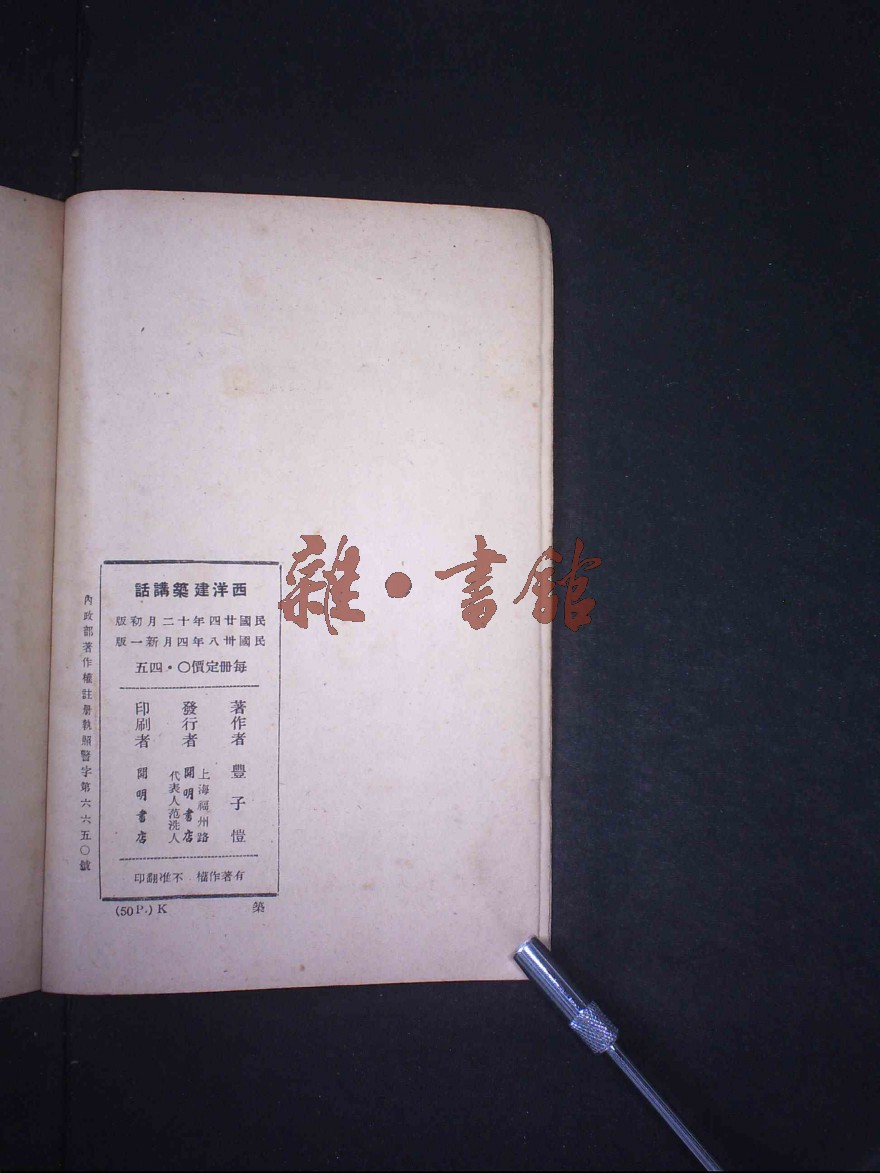 西洋建築講話
民國廿四年十二月初版
民國卅八年四月新一版
每冊定價〇・四五
著作者 豐子愷
發行者 上海福州路
開明書店
代表人范洗人
印刷者 開明書店
有著作權 不准翻印
內政部著作權註册執照警字第六六五〇號
築
(50P.) K
雜・書館